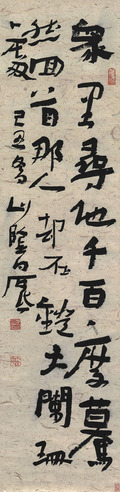 衆里尋他千百度驀
然回首那人却在鐙火闌珊
處 己丑冬 山陰白